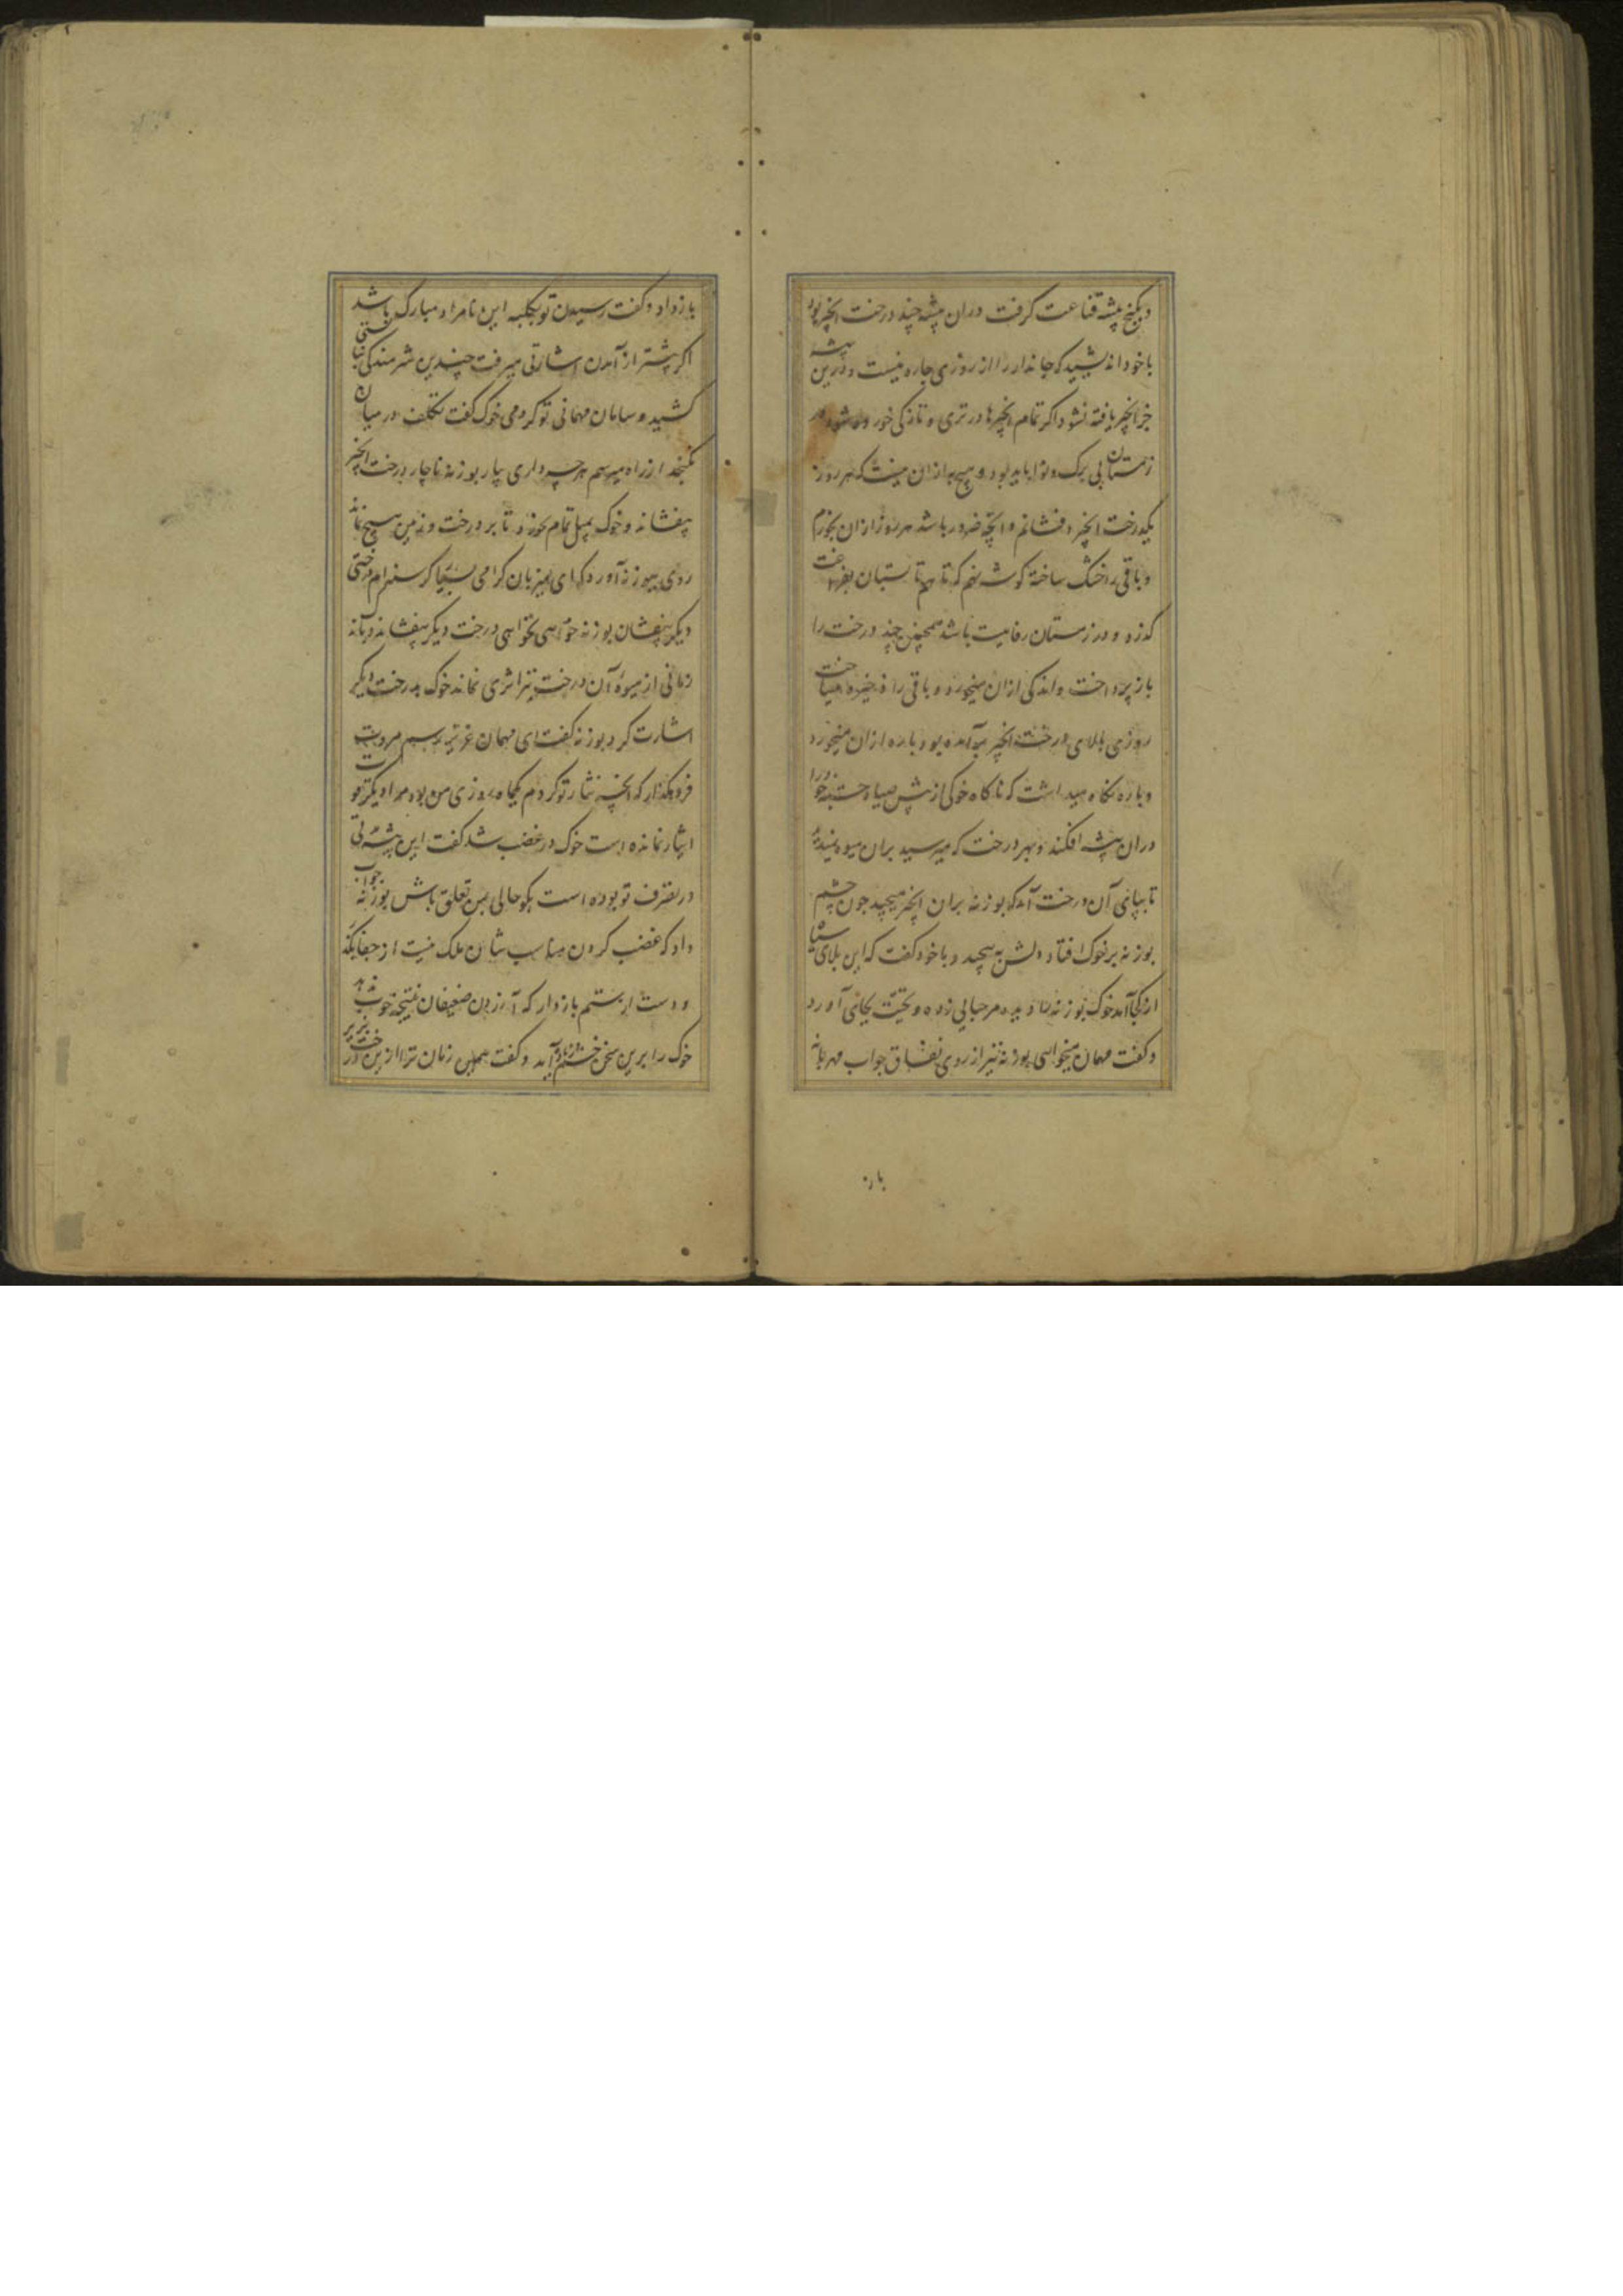 و بکنج بیشه قناعت گرفت دران بیشه چند درخت انجیر بود
با خود اندیشید که جاندار را از روزی چاره نیست و درین بیشه
جز انجیر یافته نشود اگر تمام انجیرها در تری و تازگی خورده شود در
زمستان بی برگ و نوا باید بود و هیچ به ازان نیست که هر روز
یکدرخت انجیر افشانم و آنچه ضرور باشد هر روز ازان بخورم
و باقی را خشک ساخته گوشه نهم که تا هم تابستان بفراغت
گذرد و در زمستان رفاهیت باشد همچنین چند درخت را
باز پرداخت و اندکی ازان میخورد و باقی را ذخیره میساخت
روزی بالای درخت انجیر برآمده بود پاره ازان میخورد
و پاره نگاه میداشت که ناگاه خوکی از پیش صیاد جسته خود را
دران بیشه افکند و بهر درخت که میرسید بران میوه نمیدید
تا بپای آن درخت آمد که بوزنه بران انجیر میچید چون چشم
بوزنه بر خوک افتاد دلش بپیچید و با خود گفت که این بلای سیاه
از کجا آمد خوک بوزنه را دید مرحبایی زده و تحیت بجای آورد
و گفت مهمان میخواهی بوزنه نیز از روی نفاق جواب مهربانه
باز
باز داد و گفت رسیدن تو بکلبه این نامراد مبارک باشد
اگر پیشتر از آمدن اشارتی میرفت چندین شرمندگی نبایستی
کشید و سامان مهمانی تو کردمی خوک گفت تکلف در میان
نگنجد از راه میرسم هر چه داری بیار بوزنه ناچار درخت انجیر
بیفشاند و خوک بمیل تمام بخورد تا بر درخت و زمین هیچ نماند
روی ببوزنه آورد که ای میزبان گرامی بسیار گرسنه‌ام درختی
دیگر بیفشان بوزنه خواهی نخواهی درخت دیگر بیفشاند و باندک
زمانی از میوه آن درخت نیز اثری نماند خوک بدرخت دیگر
اشارت کرد بوزنه گفت ای مهمان عزیز رسم مروت
فرو مگذار که آنچه نثار تو کردم یکماه روزی من بود مرا دیگر قوت
ایثار نمانده است خوک در غضب شد گفت این بیشه مدتی
در تصرف تو بوده است گو حالی بمن تعلق باش بوزنه جواب
داد که غضب کردن مناسب شان ملک نیست از جفا بگذر
و دست از ستم بازدار که آزردن ضعیفان نتیجه خوب ندهد
خوک را برین سخن خشم زیاده آمد و گفت همین زمان ترا ازین درخت بزیر